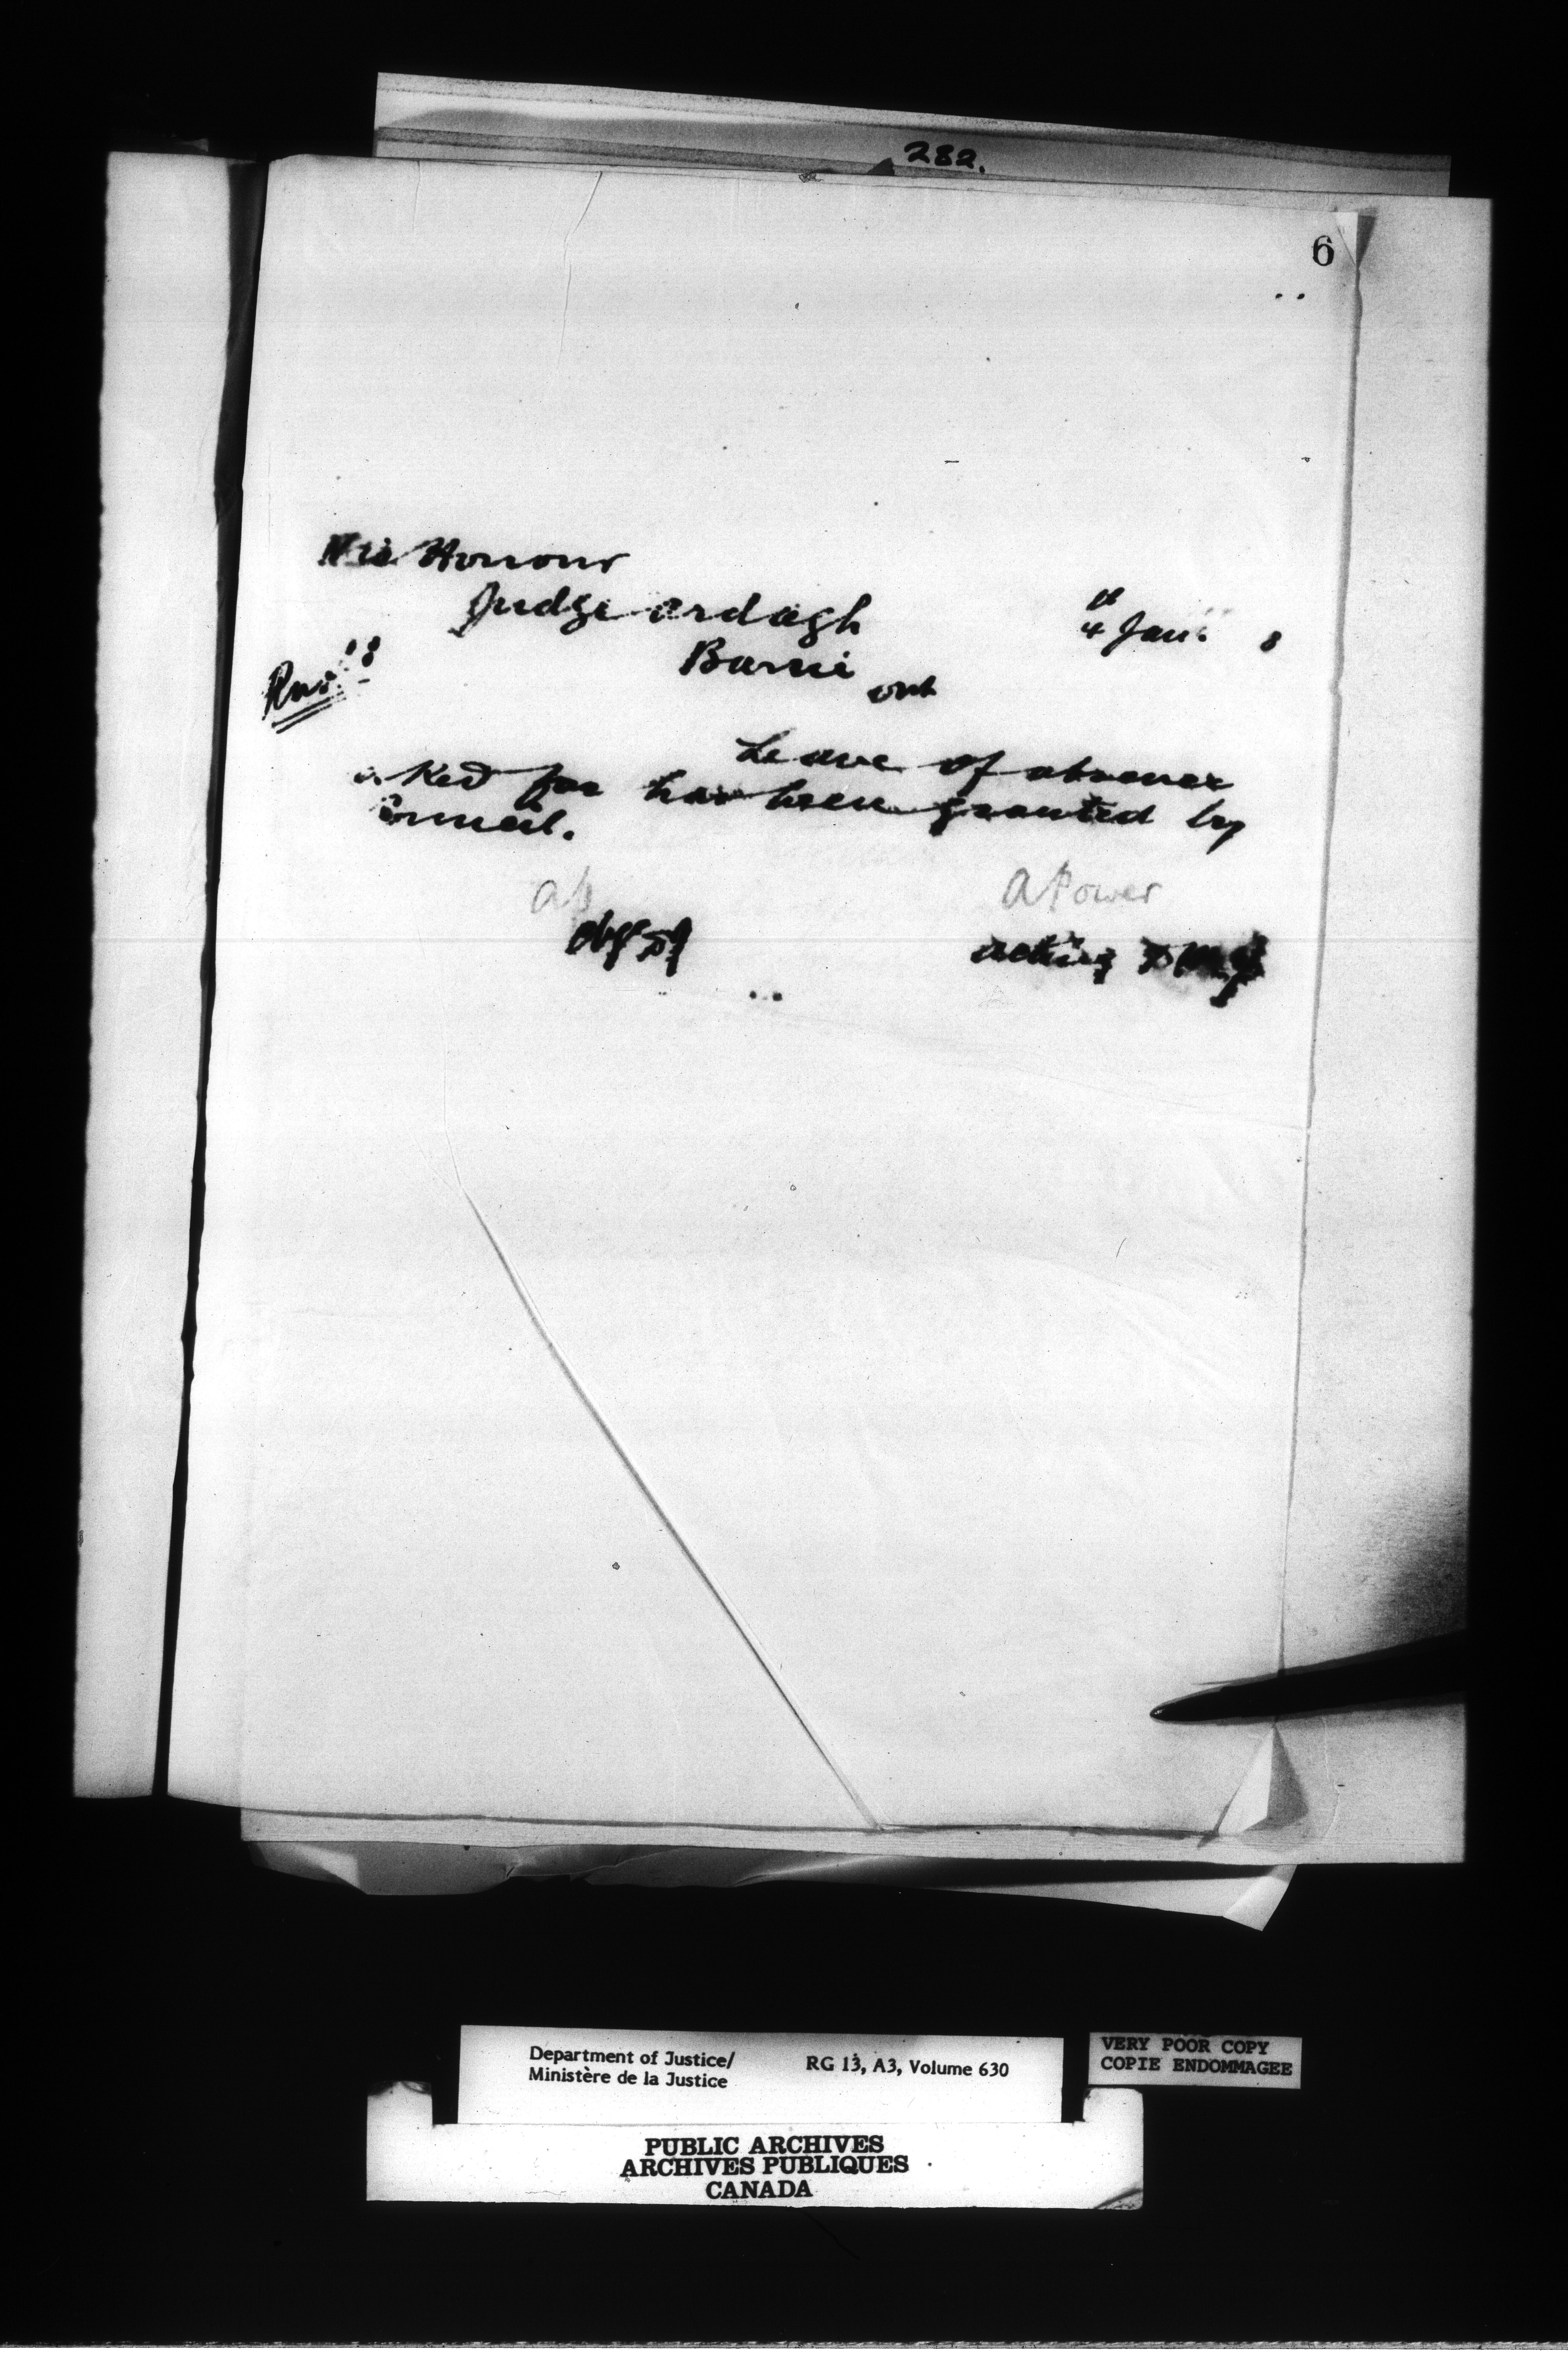 282.
6
His Honour
Judge Ardagh
4th Jan. 8
Barrie
Ont
Leave of absence
asked for has been granted by
Council.
A P
A Power
Chg DJ
acting DMJ
Department of Justice/
Ministère de la Justice
RG 13, A3, Volume 630
VERY POOR COPY
COPIE ENDOMMAGEE
PUBLIC ARCHIVES
ARCHIVES PUBLIQUES
CANADA